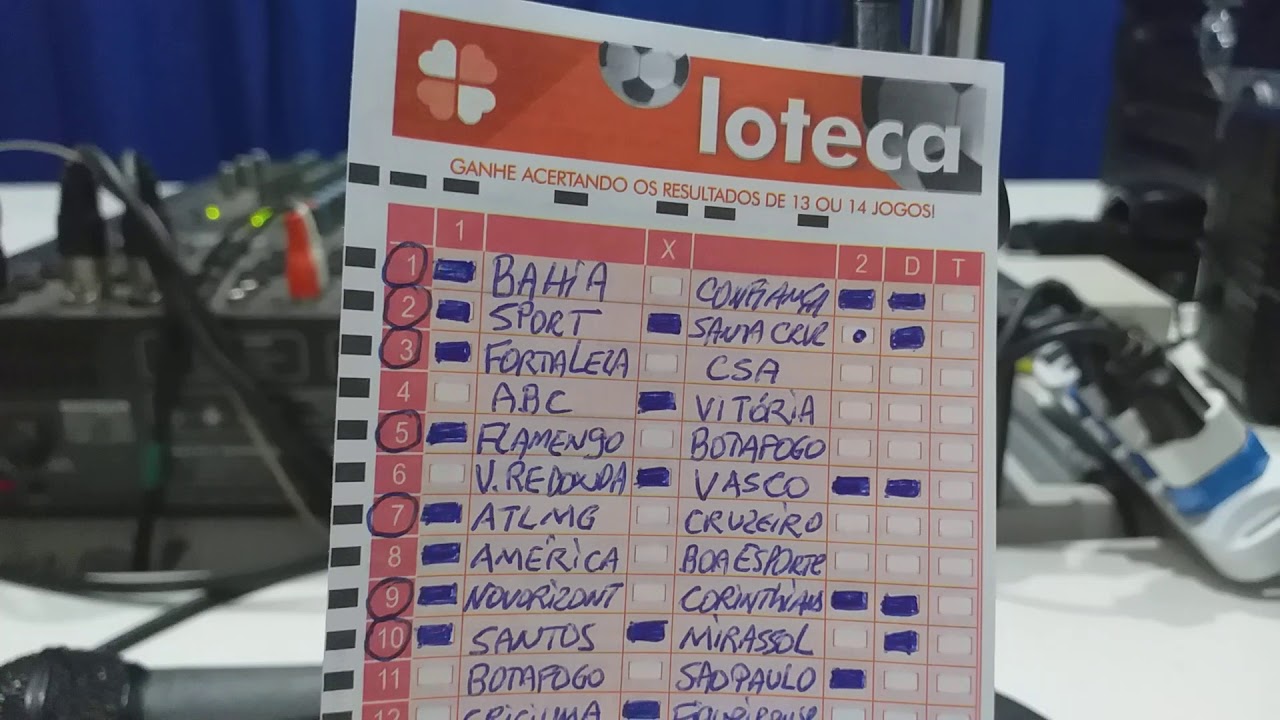 loteca
GANHE ACERTANDO OS RESULTADOS DE 13 OU 14 JOGOS!
1 X 2 D T
1 BAHIA CONFIANÇA
2 SPORT SANTA CRUZ
3 FORTALEZA CSA
4 ABC VITÓRIA
5 FLAMENGO BOTAFOGO
6 V. REDONDA VASCO
7 ATLMG CRUZEIRO
8 AMÉRICA BOA ESPORTE
9 NOVORIZONT CORINTHIANS
10 SANTOS MIRASSOL
11 BOTAFOGO SÃO PAULO
12 CRICIUMA FIGUEIRENSE